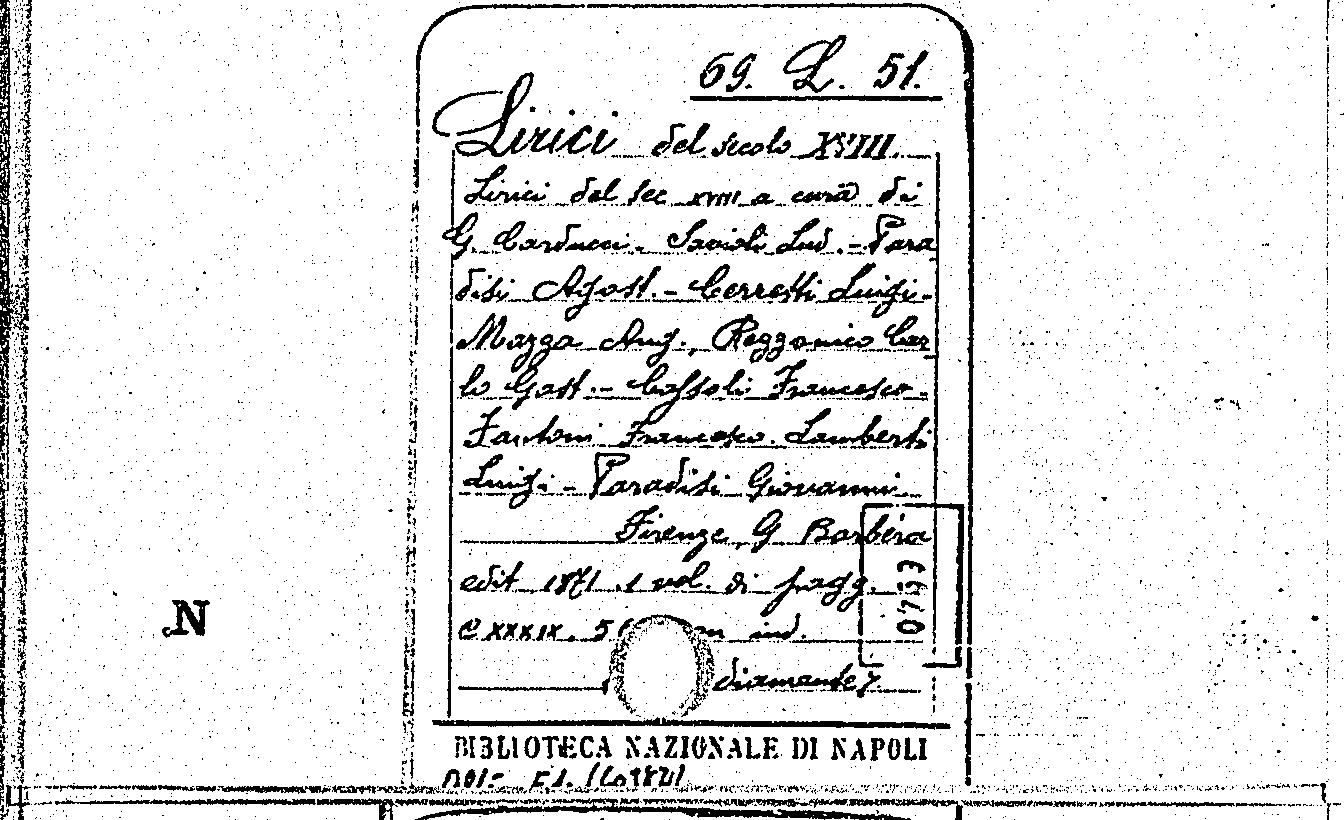 69. L. 51.
Lirici del secolo XVIII.
Lirici del sec XVIII a cura di
G. Carducci. Savioli Lud. - Para
disi Agost. - Cerretti Luigi -
Mazza Ang., Rezzonico Car
lo Gast. - Cassoli Francesco -
Fantoni Francesco. Lamberti
Luigi - Paradisi Giovanni.
Firenze, G Barbèra
edit 1871. 1 vol. di pagg.
CXXXIX. 5 ind.
diamante
N
BIBLIOTECA NAZIONALE DI NAPOLI